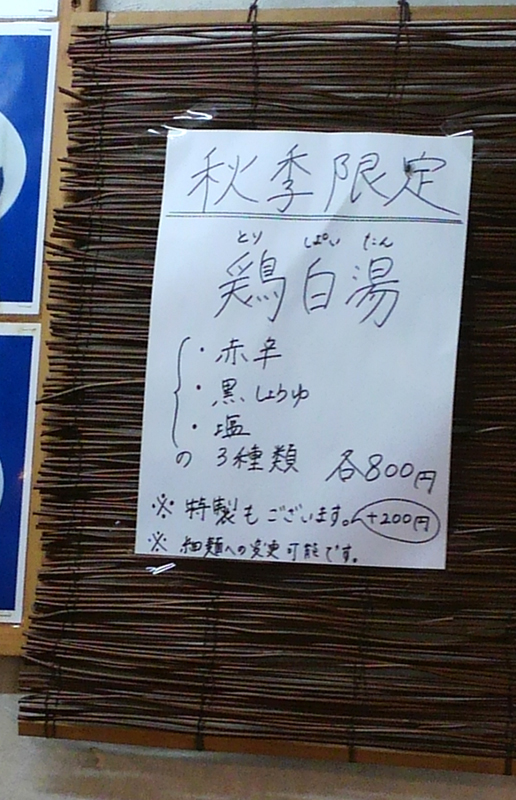 秋季限定
とり ぱい たん
鶏白湯
・赤辛
・黒しょうゆ
・塩
の3種類 各800円
※特製もございます。+200円
※細麺への変更可能です。